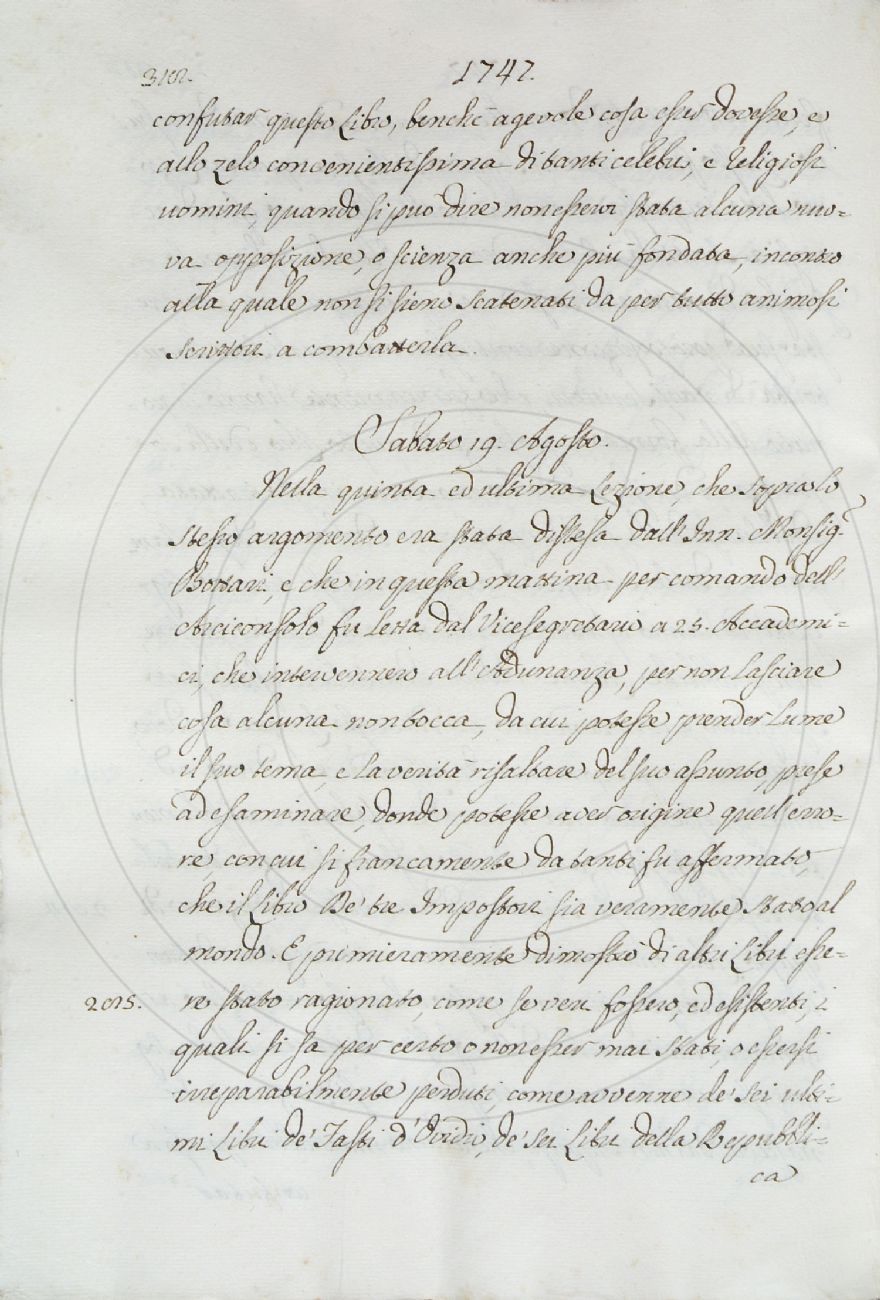 312. 1747.
confutar questo Libro, benchè agevole cosa esser dovesse, e
allo zelo convenientissima di tanti celebri, e religiosi
uomini, quando si può dire non esservi stata alcuna nuo=
va opposizione, o scienza anche più fondata, incontro
alla quale non si sieno scatenati da per tutto animosi
scrittori a combatterla.
Sabato 19. Agosto.
Nella quinta ed ultima Lezione, che sopra lo
stesso argomento era stata distesa dall' Inn. Monsig.r
Bottari, e che in questa mattina per comando dell'
Arciconsolo fu letta dal Vicesegretario a 25. Accademi=
ci, che intervennero all' Adunanza, per non lasciare
cosa alcuna non tocca, da cui potesse prender lume
il suo tema, e la verità risaltare del suo assunto, prese
ad esaminare, donde potesse aver origine quell' erro=
re, con cui sì francamente da tanti fu affermato,
che il Libro De' tre Impostori sia veramente stato al
mondo. E primieramente dimostrò di altri Libri esse=
2025. re stato ragionato, come se veri fossero, ed esistenti, i
quali si sa per certo o non esser mai stati, o essersi
irreparabilmente perduti, come avvenne de' sei ulti=
mi Libri de' Fasti d' Ovidio, de' sei Libri della Repubbli=
ca